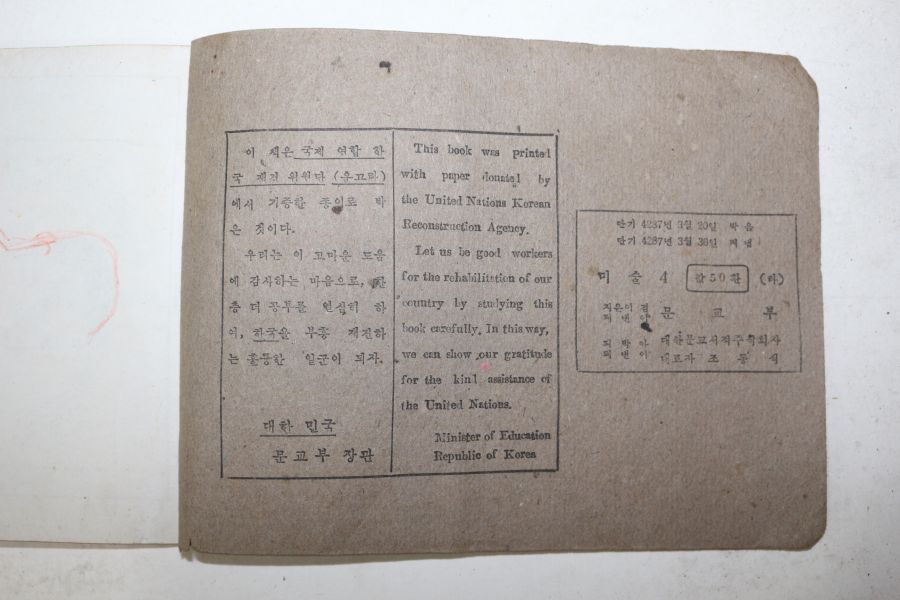 이 책은 국제 연합 한
국 재건 위원단 (운끄라)
에서 기증한 종이로 박
은 것이다.
우리는 이 고마운 도움
에 감사하는 마음으로, 한
층 더 공부를 열심히 하
여, 한국을 부흥 재건하
는 훌륭한 일군이 되자.
대한 민국
문교부 장관
This book was printed
with paper donated by
the United Nations Korean
Reconstruction Agency.
Let us be good workers
for the rehabilitation of our
country by studying this
book carefully. In this way,
we can show our gratitude
for the kind assistance of
the United Nations.
Minister of Education
Republic of Korea
단기 4287년 3월 20일 박음
단기 4287년 3월 30일 펴냄
미 술 4 값50환
지은이 겸
펴낸이 문 교 부
박아
펴낸이 대한문교서적주식회사
대표자 조